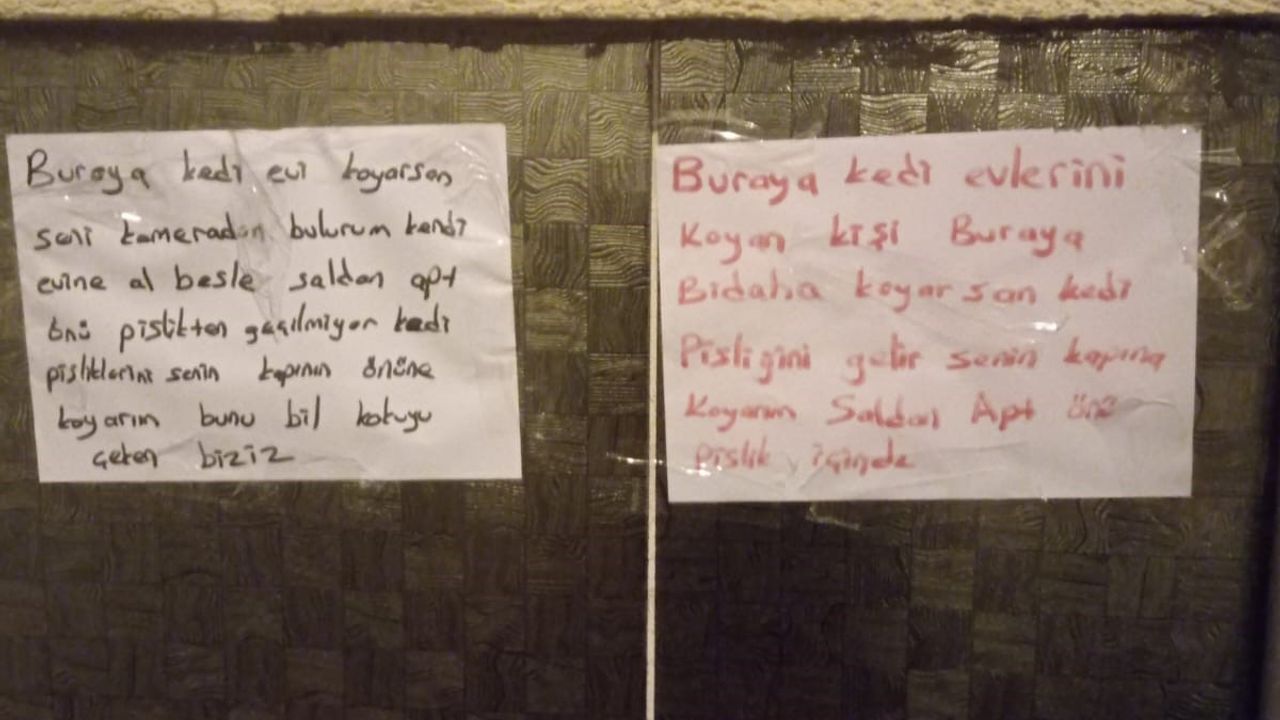 Buraya kedi evi koyarsan
seni kameradan bulurum kendi
evine al besle saldan apt
önü pislikten geçilmiyor kedi
pisliklerini senin kapının önüne
koyarım bunu bil kokuyu
çeken biziz
Buraya kedi evlerini
Koyan kişi Buraya
Bidaha koyarsan kedi
Pisliğini getir senin kapına
Koyarım Saldan Apt önü
pislik içinde